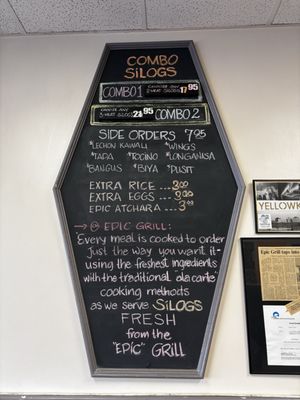 COMBO
SiLOGS
COMBO 1 CHOOSE ANY 2-MEAT SILOGS 17.95
CHOOSE ANY 3-MEAT SILOGS 95 COMBO 2
SIDE ORDERS 7.95
*LECHON KAWALI *WINGS
*TAPA *TOCINO *LONGANISA
*BANGUS *BIYA *PUSIT
EXTRA RICE ... 3.00
EXTRA EGGS ...
EPIC ATCHARA ... 3.00
EPIC GRILL:
Every meal is cooked to order
just the way you want it-
using the freshest ingredients
with the traditional "ala carte"
cooking methods
as we serve SiLOGS
FRESH
from the
"EPIC" GRILL
YELLOWK
Epic Grill taps into